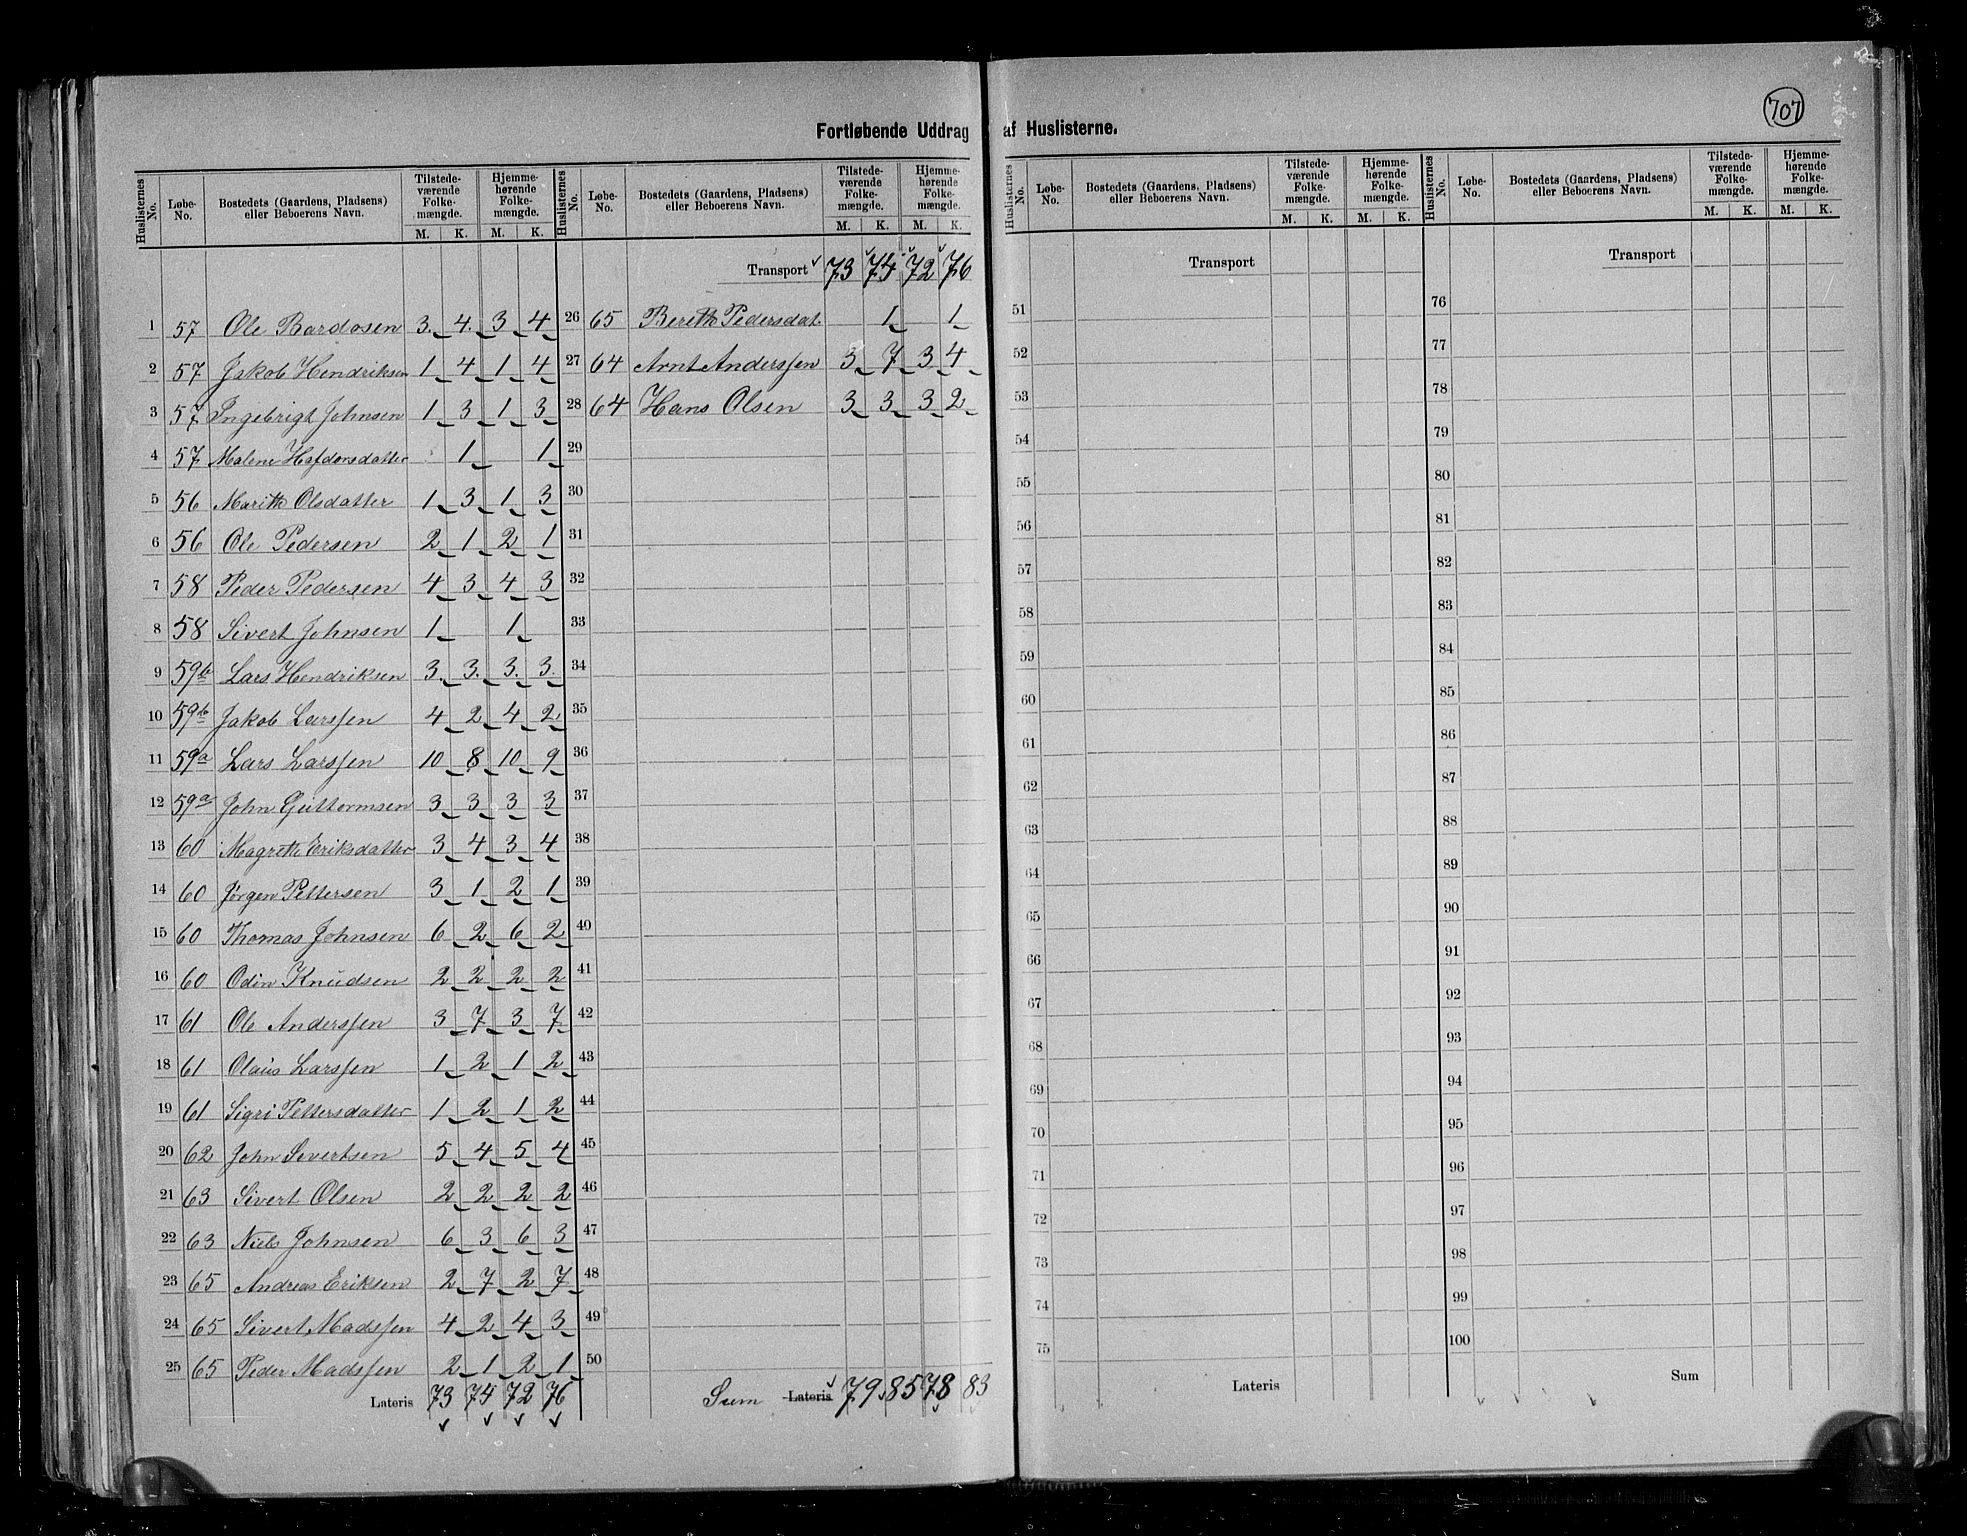 707
Fortløbende Uddrag af Huslisterne.
Huslisternes No. | Løbe-No. | Bostedets (Gaardens, Pladsens) eller Beboerens Navn. | Tilstedeværende Folkemængde. M. K. | Hjemmehørende Folkemængde. M. K.
1 57 Ole Bardosen 3 4 3 4
2 57 Jakob Hendriksen 1 4 1 4
3 57 Ingebrigt Johnsen 1 3 1 3
4 57 Malene Hafdorsdatter 1 1
5 56 Marith Olsdatter 1 3 1 3
6 56 Ole Pedersen 2 1 2 1
7 58 Peder Pedersen 4 3 4 3
8 58 Sivert Johnsen 1 1
9 59b Lars Hendriksen 3 3 3 3
10 59b Jakob Larssen 4 2 4 2
11 59a Lars Larssen 10 8 10 9
12 59a John Guttormsen 3 3 3 3
13 60 Magreth Eriksdatter 3 4 3 4
14 60 Jørgen Pettersen 3 1 2 1
15 60 Thomas Johnsen 6 2 6 2
16 60 Odin Knudsen 2 2 2 2
17 61 Ole Anderssen 3 7 3 7
18 61 Olaus Larssen 1 2 1 2
19 61 Sigri Pettersdatter 1 2 1 2
20 62 John Sivertsen 5 4 5 4
21 63 Sivert Olsen 2 2 2 2
22 63 Niels Johnsen 6 3 6 3
23 65 Andreas Eriksen 2 7 2 7
24 65 Sivert Madssen 4 2 4 3
25 65 Peder Madssen 2 1 2 1
Lateris 73 74 72 76
Huslisternes No. | Løbe-No. | Bostedets (Gaardens, Pladsens) eller Beboerens Navn. | Tilstedeværende Folkemængde. M. K. | Hjemmehørende Folkemængde. M. K.
Transport 73 74 72 76
26 65 Bereth Pedersdat. 1 1
27 64 Arnt Anderssen 3 7 3 4
28 64 Hans Olsen 3 3 3 2
29
30
31
32
33
34
35
36
37
38
39
40
41
42
43
44
45
46
47
48
49
50
Sum Lateris 79 85 78 83
Huslisternes No. | Løbe-No. | Bostedets (Gaardens, Pladsens) eller Beboerens Navn. | Tilstedeværende Folkemængde. M. K. | Hjemmehørende Folkemængde. M. K.
Transport
51
52
53
54
55
56
57
58
59
60
61
62
63
64
65
66
67
68
69
70
71
72
73
74
75
Lateris
Huslisternes No. | Løbe-No. | Bostedets (Gaardens, Pladsens) eller Beboerens Navn. | Tilstedeværende Folkemængde. M. K. | Hjemmehørende Folkemængde. M. K.
Transport
76
77
78
79
80
81
82
83
84
85
86
87
88
89
90
91
92
93
94
95
96
97
98
99
100
Sum